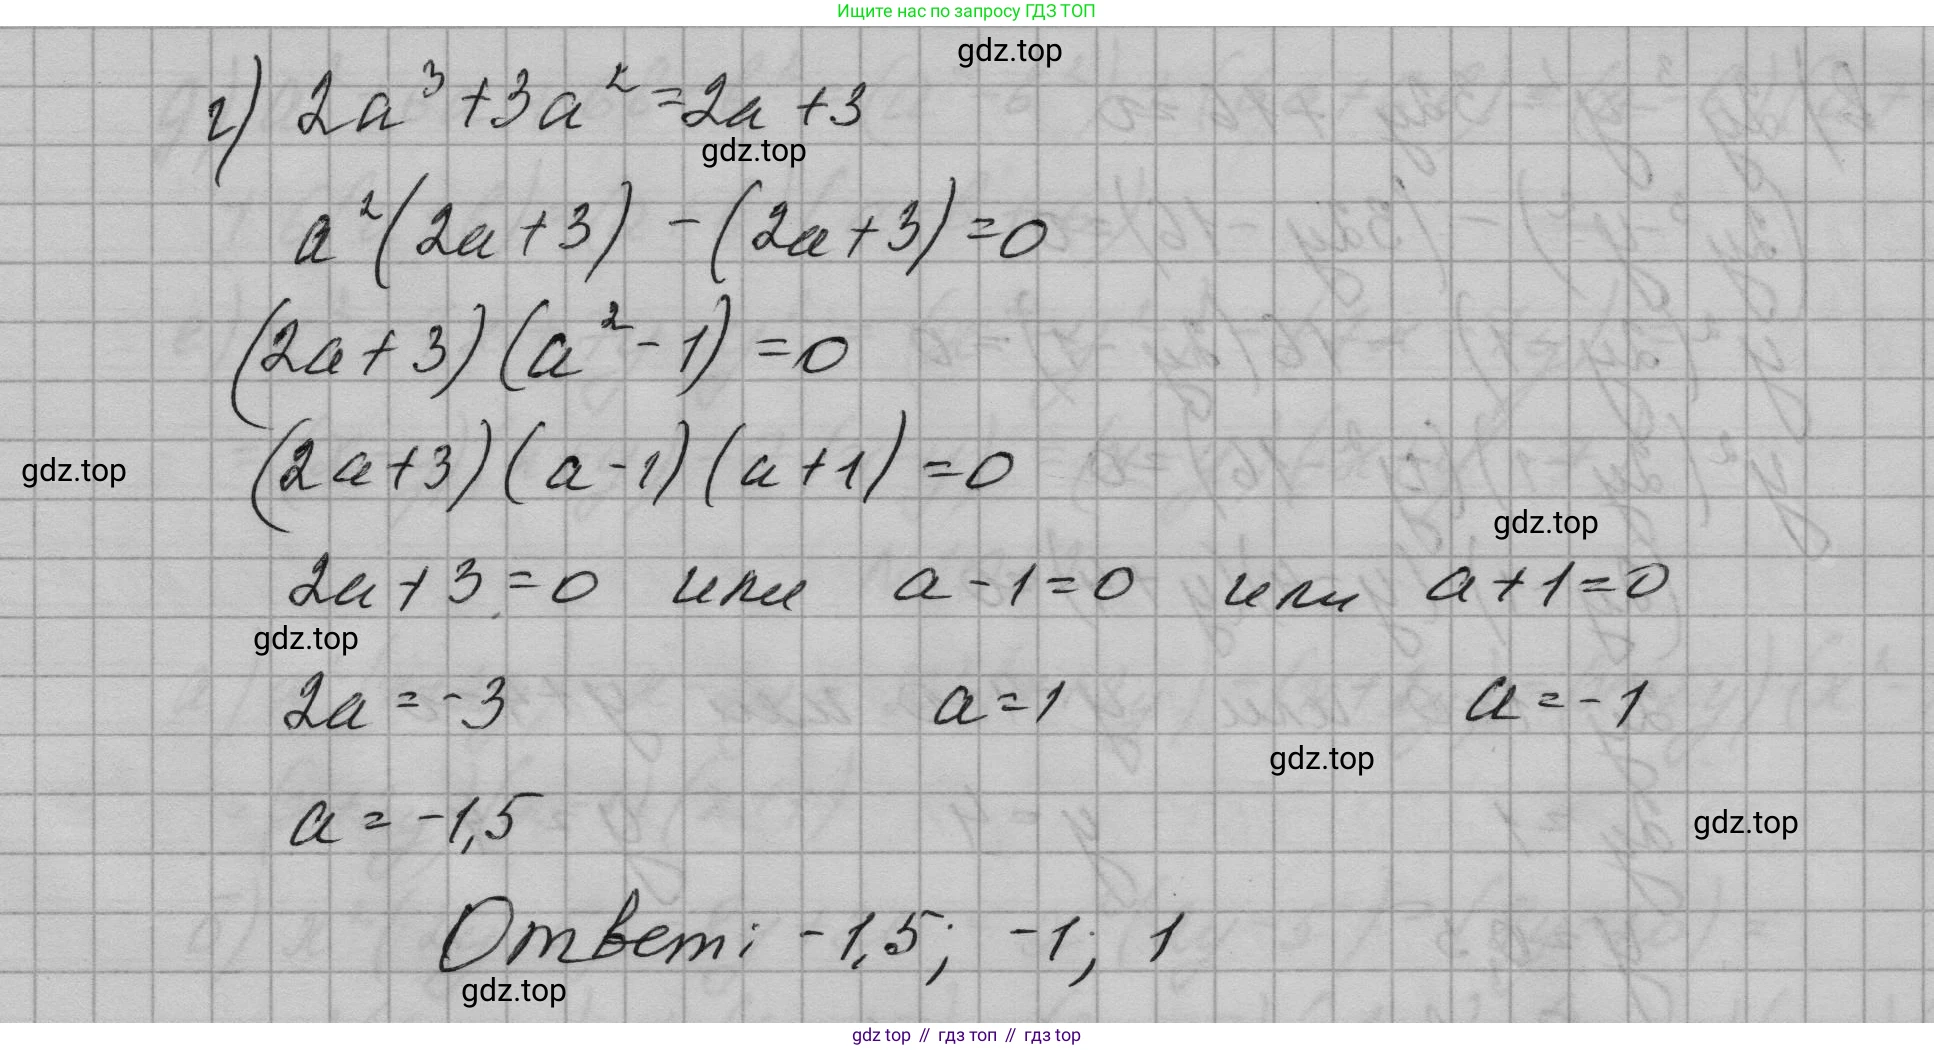 Ищите нас по запросу ГДЗ ТОП
gdz.top
г) 2a³ + 3a² = 2a + 3
gdz.top
a²(2a + 3) - (2a + 3) = 0
(2a + 3)(a² - 1) = 0
(2a + 3)(a - 1)(a + 1) = 0
gdz.top
gdz.top
2a + 3 = 0 или a - 1 = 0 или a + 1 = 0
gdz.top
2a = -3 a = 1 a = -1
gdz.top
a = -1,5
gdz.top
Ответ: -1,5; -1; 1
gdz.top
gdz top // гдз топ // гдз top